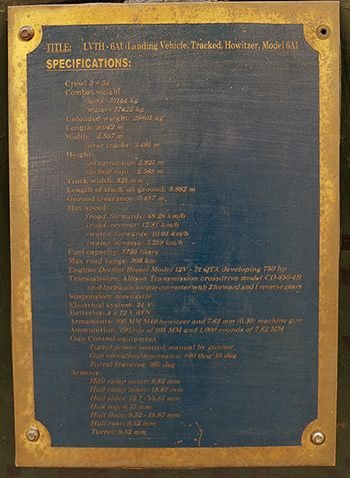 TITLE: LVTH - 6A1 (Landing Vehicle, Tracked, Howitzer, Model 6A1
SPECIFICATIONS:
Crew:
Combat weight:
(land)
(water) 37422 kg
Unloaded weight: 29801 kg
Length: 9.042 m
Width:
(over tracks) 3.491 m
Height:
(to turret top) 2.921 m
(to hull top) 2.565 m
Track width: 521 mm
Length of track on ground: 5.892 m
Ground clearance: 0.457 m
Max speed:
(road, forwards) 48.28 km/h
(road, reverse) 12.87 km/h
(water, forwards) 10.94 km/h
(water, reverse) 5.219 km/h
Fuel capacity: 1726 liters
Max road range: 306 km
Engine: Detriot Diesel Model 12V - 71 QTA developing 750 hp
Transmission: Allison Transmission crossdrive model CD-850-4B
and hydraulic torque converter with 2 forward and 1 reverse gears
Suspension: torsilastic
Electrical system: 24 V
Batteries: 4 x 12 V
Armaments: 105 MM M49 howitzer and 7.62 mm (0.30) machine gun
Ammunition: 100 rds of 105 MM and 1,000 rounds of 7.62 MM
Gun Control equipment
Turret power control: manual by gunner
Gun elevation/depression: +60 deg/-15 deg
Turret traverse: 360 deg
Armour:
Hull ramp outer: 9.52 mm
Hull ramp inner: 15.87 mm
Hull sides: 12.7 - 15.87 mm
Hull top: 6.37 mm
Hull floor: 9.52 - 15.87 mm
Hull rear: 9.52 mm
Turret: 9.52 mm